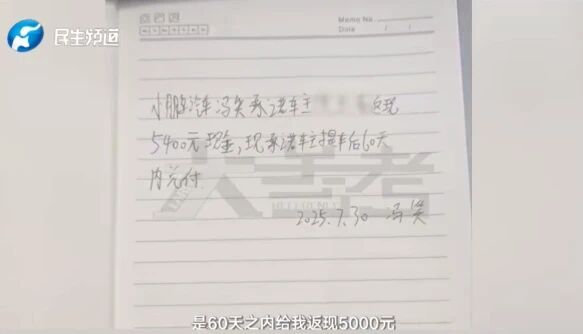 民生频道
Memo No.
Date / /
小鹏汽车冯笑承诺车主 返现
5400元现金,现承诺车主提车后60天
内兑付
大参考
REFERENCE
2025.7.30 冯笑
是60天之内给我返现5000元